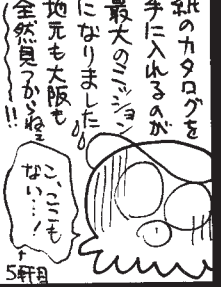 紙のカタログを
手に入れるのが
最大のミッション
になりました
地元も大阪も
全然見つからねぇ
〜!!
こ、ここも
ない…!
↑
5軒目